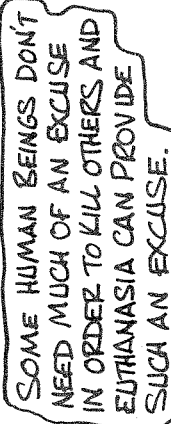 SOME HUMAN BEINGS DON'T
NEED MUCH OF AN EXCUSE
IN ORDER TO KILL OTHERS AND
EUTHANASIA CAN PROVIDE
SUCH AN EXCUSE.